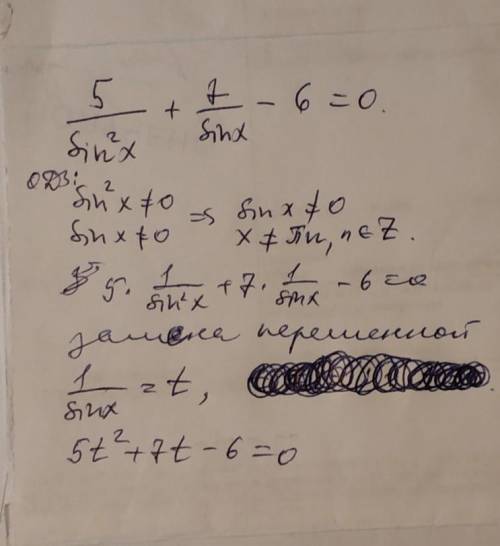 5/sin²x + 7/sinx - 6 = 0.
ОДЗ:
sin²x ≠ 0 ⇒ sinx ≠ 0
sinx ≠ 0 x ≠ πn, n ∈ Z.
5 · 1/sin²x + 7 · 1/sinx - 6 = 0
замена переменной
1/sinx = t,
5t² + 7t - 6 = 0